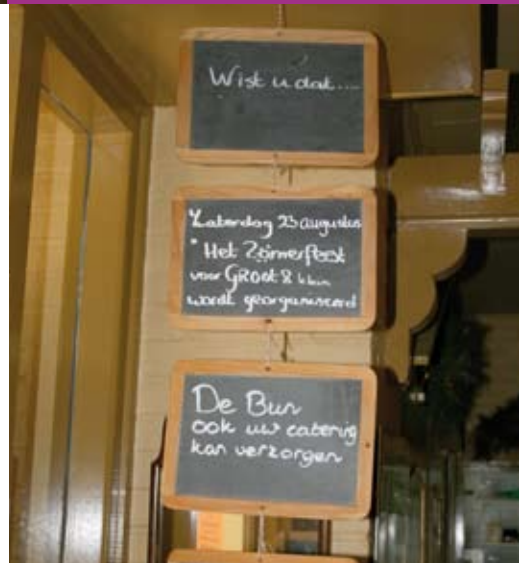 Wist u dat....
Zaterdag 23 augustus
"Het Zomerfeest
voor GROOT & klein
wordt georganiseerd
De Bun
ook uw catering
kan verzorgen